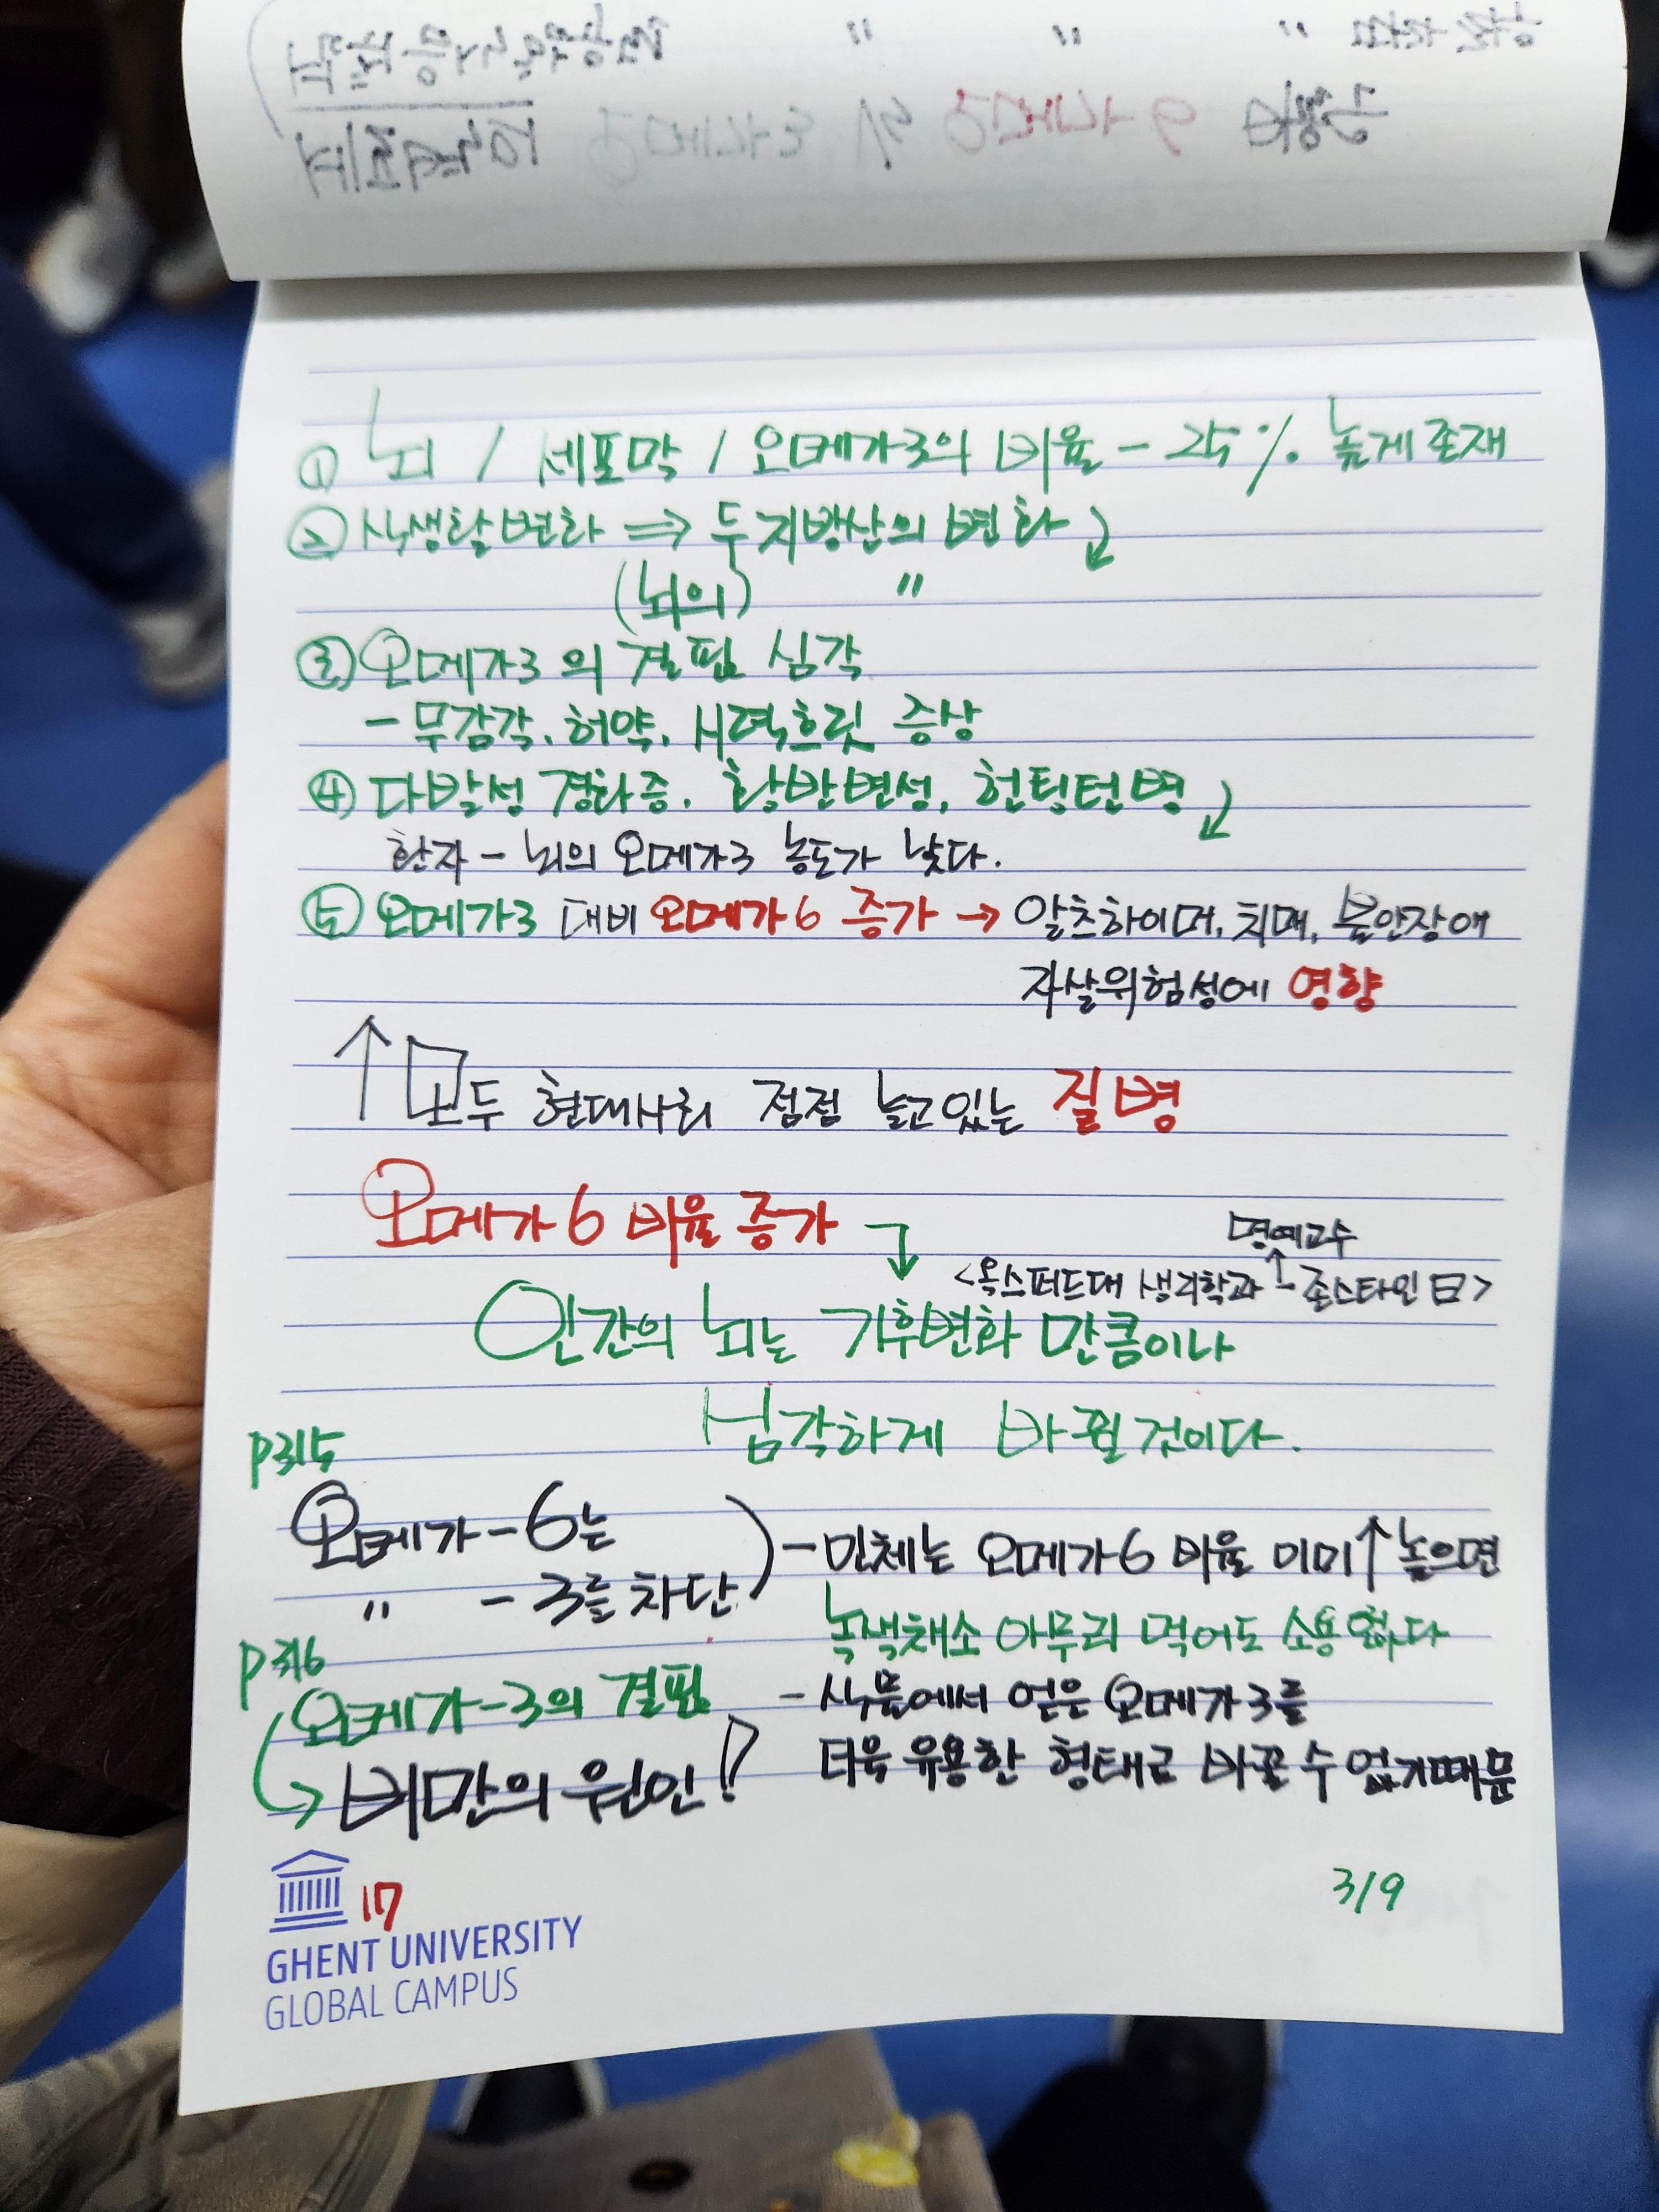 ① 뇌 / 세포막 / 오메가3의 비율 - 25% 높게 존재
② 식생활변화 ⇒ 두지방산의 변화
(뇌의) "
③ 오메가3의 결핍 심각
- 무감각, 허약, 시력흐릿 증상
④ 다발성 경화증, 황반변성, 헌팅턴병
환자 - 뇌의 오메가3 농도가 낮다.
⑤ 오메가3 대비 오메가6 증가 → 알츠하이머, 치매, 불안장애
자살위험성에 영향
↑ 모두 현대사회 점점 늘고있는 질병
오메가6 비율증가
명예교수
<옥스퍼드대 생리학과 - 존스타인 曰>
인간의 뇌는 기후변화 만큼이나
심각하게 바뀔것이다.
P315
오메가-6는
" -3를 차단
- 인체는 오메가6 비율 이미↑ 높으면
녹색채소 아무리 먹어도 소용없다
P316
오메가-3의 결핍
→ 비만의 원인!
- 식물에서 얻은 오메가3를
더욱 유용한 형태로 바꿀 수 없기때문
17
3/9
GHENT UNIVERSITY
GLOBAL CAMPUS